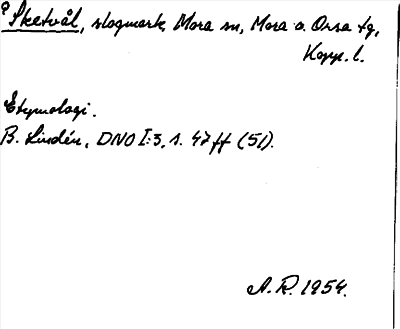 Åsketvål, slogmark, Mora sn, Mora o. Orsa tg,
Kopp. l.
Etymologi.
B. Lindén, DNO I:3, s. 47 ff (51).
A. R. 1954.